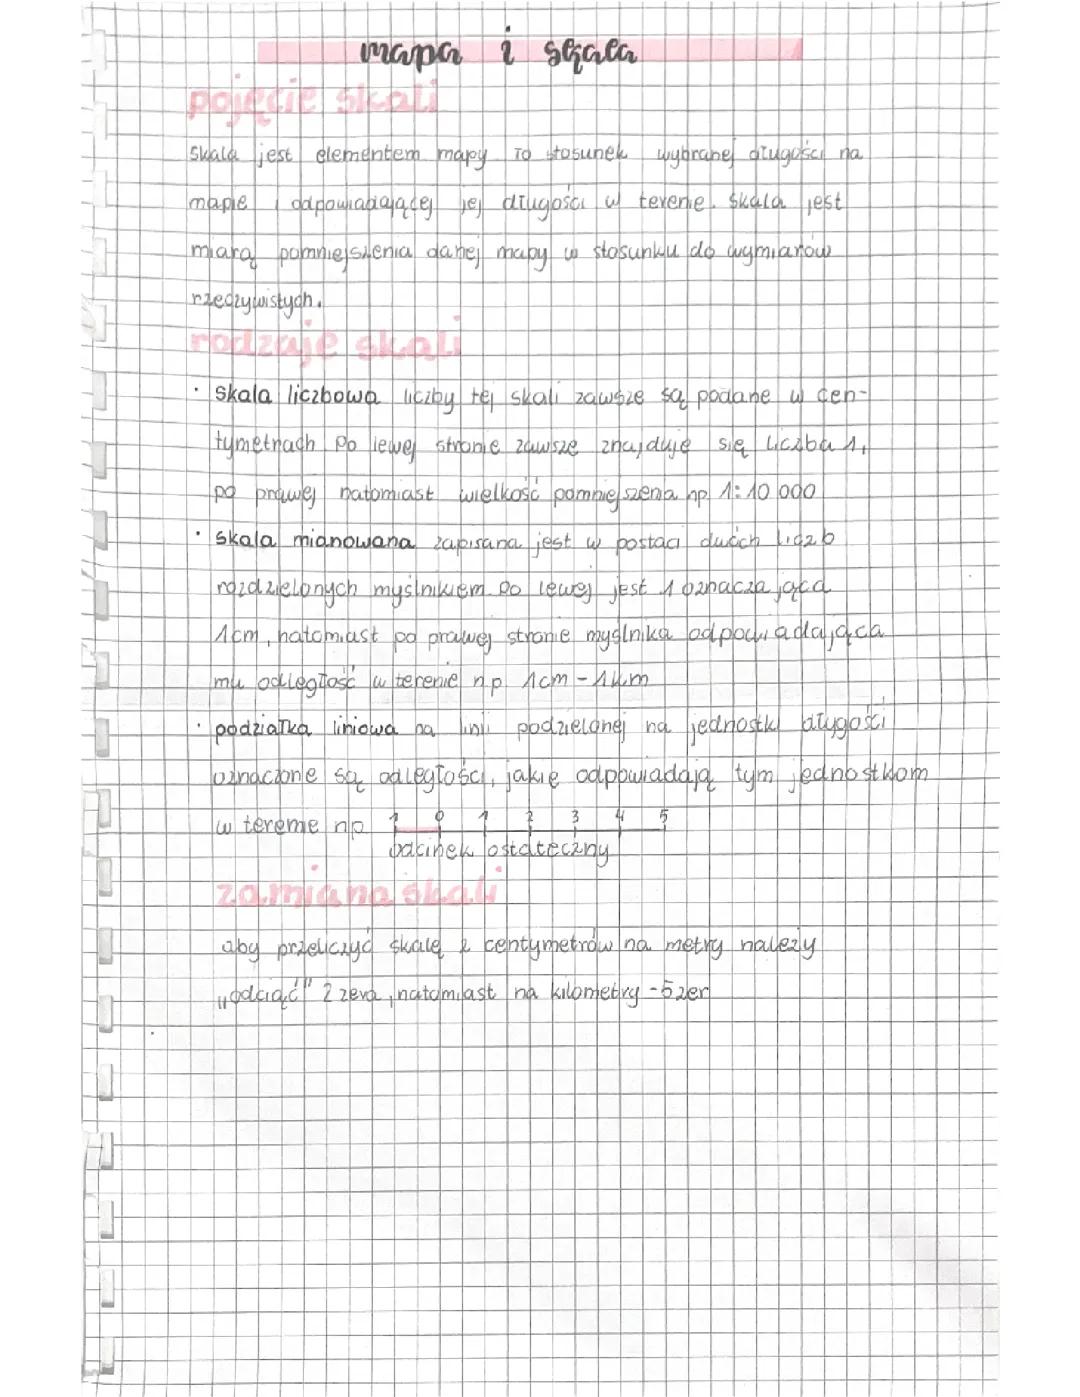 mapa i skala
pojęcie skali
Skala jest elementem mapy To stosunek wybranej długości na
mapie i odpowiadającej jej długości w terenie. Skala jest
miarą pomniejszenia danej mapy w stosunku do wymiarów
rzeczywistych.
rodzaje skali
· skala liczbowa liczby tej skali zawsze są podane w cen-
tymetrach Po lewej stronie zawsze znajduje się liczba 1,
po prawej natomiast wielkość pomniejszenia np 1:10 000
· skala mianowana zapisana jest w postaci dwóch liczb
rozdzielonych myślnikiem Po lewej jest 1 oznaczająca
1cm, natomiast po prawej stronie myślnika odpowiadająca
mu odległość w terenie np 1cm - 1km
· podziałka liniowa na linii podzielonej na jednostki długości
oznaczone są odległości, jakie odpowiadają tym jednostkom
w terenie np 1 0 1 2 3 4 5
odcinek ostateczny
zamiana skali
aby przeliczyć skalę z centymetrów na metry należy
„odciąć" 2 zera, natomiast na kilometry - 5 zer